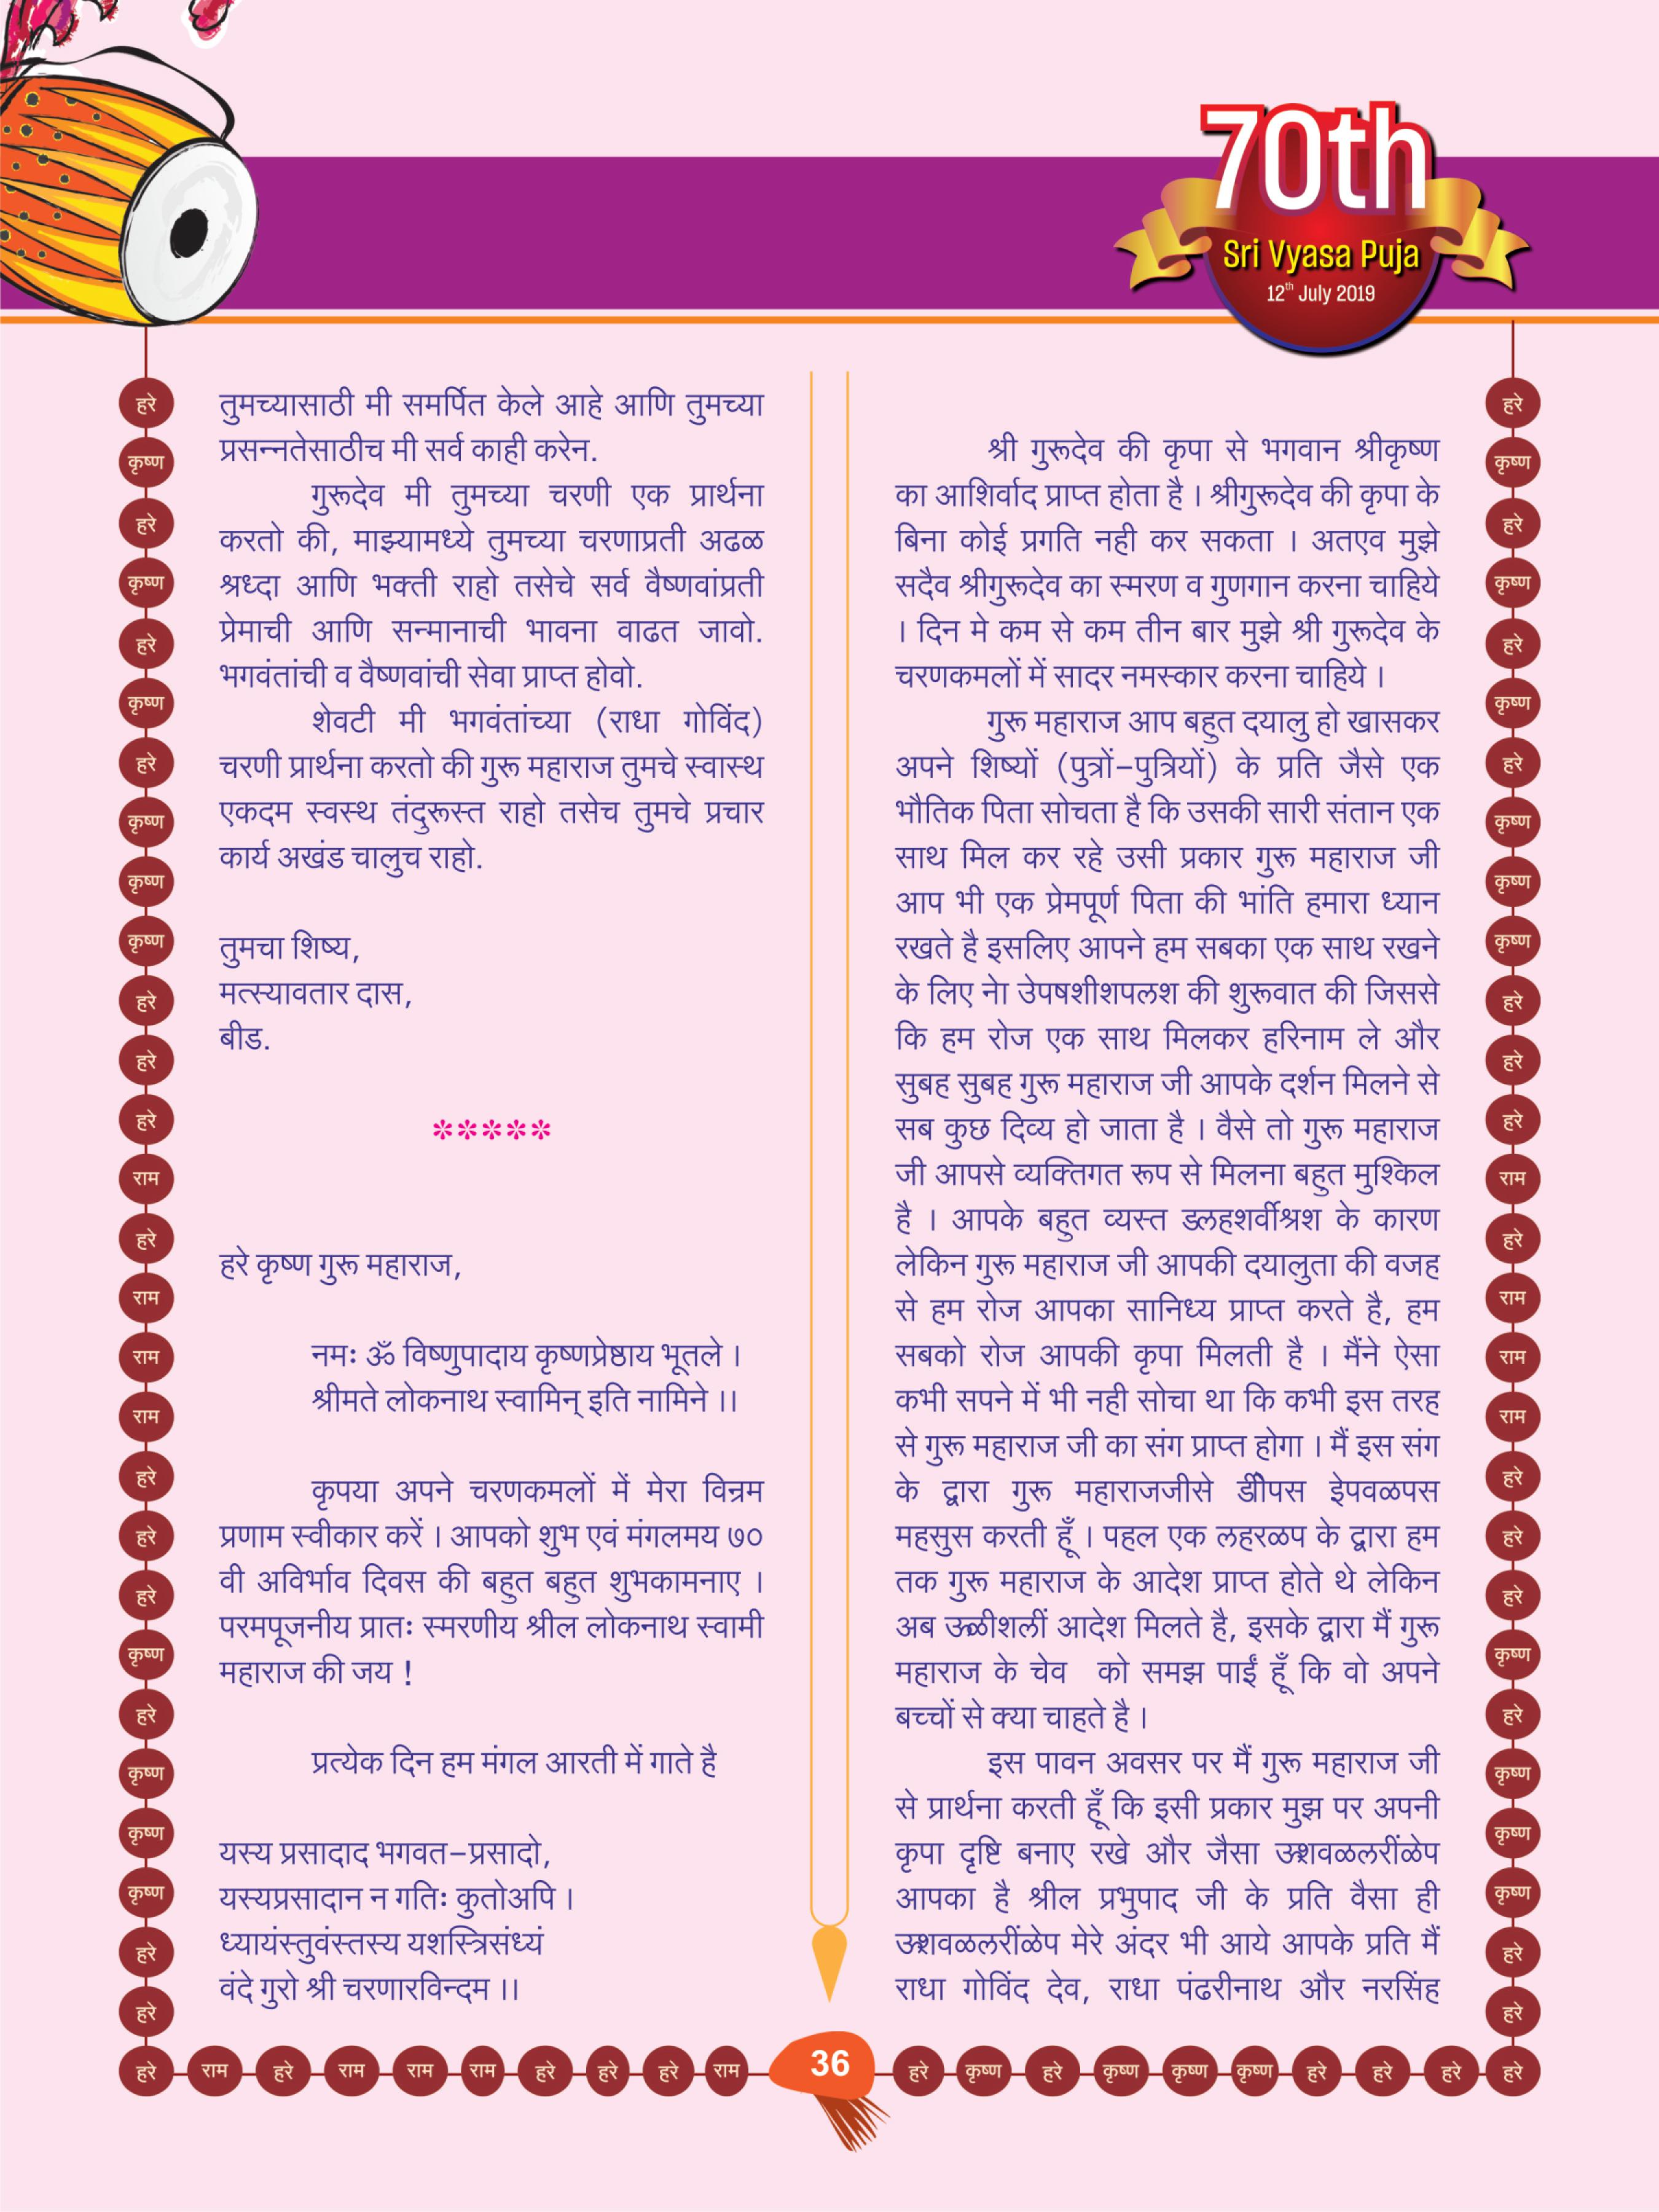 70th
Sri Vyasa Puja
12th July 2019
तुमच्यासाठी मी समर्पित केले आहे आणि तुमच्या
प्रसन्नतेसाठीच मी सर्व काही करेन.
गुरूदेव मी तुमच्या चरणी एक प्रार्थना
करतो की, माझ्यामध्ये तुमच्या चरणाप्रती अढळ
श्रध्दा आणि भक्ती राहो तसेचे सर्व वैष्णवांप्रती
प्रेमाची आणि सन्मानाची भावना वाढत जावो.
भगवंतांची व वैष्णवांची सेवा प्राप्त होवो.
शेवटी मी भगवंतांच्या (राधा गोविंद)
चरणी प्रार्थना करतो की गुरू महाराज तुमचे स्वास्थ
एकदम स्वस्थ तंदुरूस्त राहो तसेच तुमचे प्रचार
कार्य अखंड चालुच राहो.
तुमचा शिष्य,
मत्स्यावतार दास,
बीड.
*****
हरे कृष्ण गुरू महाराज,
नमः ॐ विष्णुपादाय कृष्णप्रेष्ठाय भूतले ।
श्रीमते लोकनाथ स्वामिन् इति नामिने ।।
कृपया अपने चरणकमलों में मेरा विनम्र
प्रणाम स्वीकार करें । आपको शुभ एवं मंगलमय ७०
वी अविर्भाव दिवस की बहुत बहुत शुभकामनाए ।
परमपूजनीय प्रातः स्मरणीय श्रील लोकनाथ स्वामी
महाराज की जय !
प्रत्येक दिन हम मंगल आरती में गाते है
यस्य प्रसादाद भगवत–प्रसादो,
यस्यप्रसादान न गतिः कुतोअपि ।
ध्यायंस्तुवंस्तस्य यशस्त्रिसंध्यं
वंदे गुरो श्री चरणारविन्दम ।।
श्री गुरूदेव की कृपा से भगवान श्रीकृष्ण
का आशिर्वाद प्राप्त होता है । श्रीगुरूदेव की कृपा के
बिना कोई प्रगति नही कर सकता । अतएव मुझे
सदैव श्रीगुरूदेव का स्मरण व गुणगान करना चाहिये
। दिन मे कम से कम तीन बार मुझे श्री गुरूदेव के
चरणकमलों में सादर नमस्कार करना चाहिये ।
गुरू महाराज आप बहुत दयालु हो खासकर
अपने शिष्यों (पुत्रों–पुत्रियों) के प्रति जैसे एक
भौतिक पिता सोचता है कि उसकी सारी संतान एक
साथ मिल कर रहे उसी प्रकार गुरू महाराज जी
आप भी एक प्रेमपूर्ण पिता की भांति हमारा ध्यान
रखते है इसलिए आपने हम सबका एक साथ रखने
के लिए नेा उेपषशीशपलश की शुरूवात की जिससे
कि हम रोज एक साथ मिलकर हरिनाम ले और
सुबह सुबह गुरू महाराज जी आपके दर्शन मिलने से
सब कुछ दिव्य हो जाता है । वैसे तो गुरू महाराज
जी आपसे व्यक्तिगत रूप से मिलना बहुत मुश्किल
है । आपके बहुत व्यस्त ड्लहशर्वीश्रश के कारण
लेकिन गुरू महाराज जी आपकी दयालुता की वजह
से हम रोज आपका सानिध्य प्राप्त करते है, हम
सबको रोज आपकी कृपा मिलती है । मैंने ऐसा
कभी सपने में भी नही सोचा था कि कभी इस तरह
से गुरू महाराज जी का संग प्राप्त होगा । मैं इस संग
के द्वारा गुरू महाराजजीसे ईेपवळपस
महसुस करती हूँ । पहल एक लहरळप के द्वारा हम
तक गुरू महाराज के आदेश प्राप्त होते थे लेकिन
अब आदेश मिलते है, इसके द्वारा मैं गुरू
महाराज के चेव को समझ पाईं हूँ कि वो अपने
बच्चों से क्या चाहते है ।
इस पावन अवसर पर मैं गुरू महाराज जी
से प्रार्थना करती हूँ कि इसी प्रकार मुझ पर अपनी
कृपा दृष्टि बनाए रखे और जैसा
आपका है श्रील प्रभुपाद जी के प्रति वैसा ही
मेरे अंदर भी आये आपके प्रति मैं
राधा गोविंद देव, राधा पंढरीनाथ और नरसिंह
हरे राम हरे राम राम राम हरे हरे हरे राम 36 हरे कृष्ण हरे कृष्ण कृष्ण कृष्ण हरे हरे हरे हरे